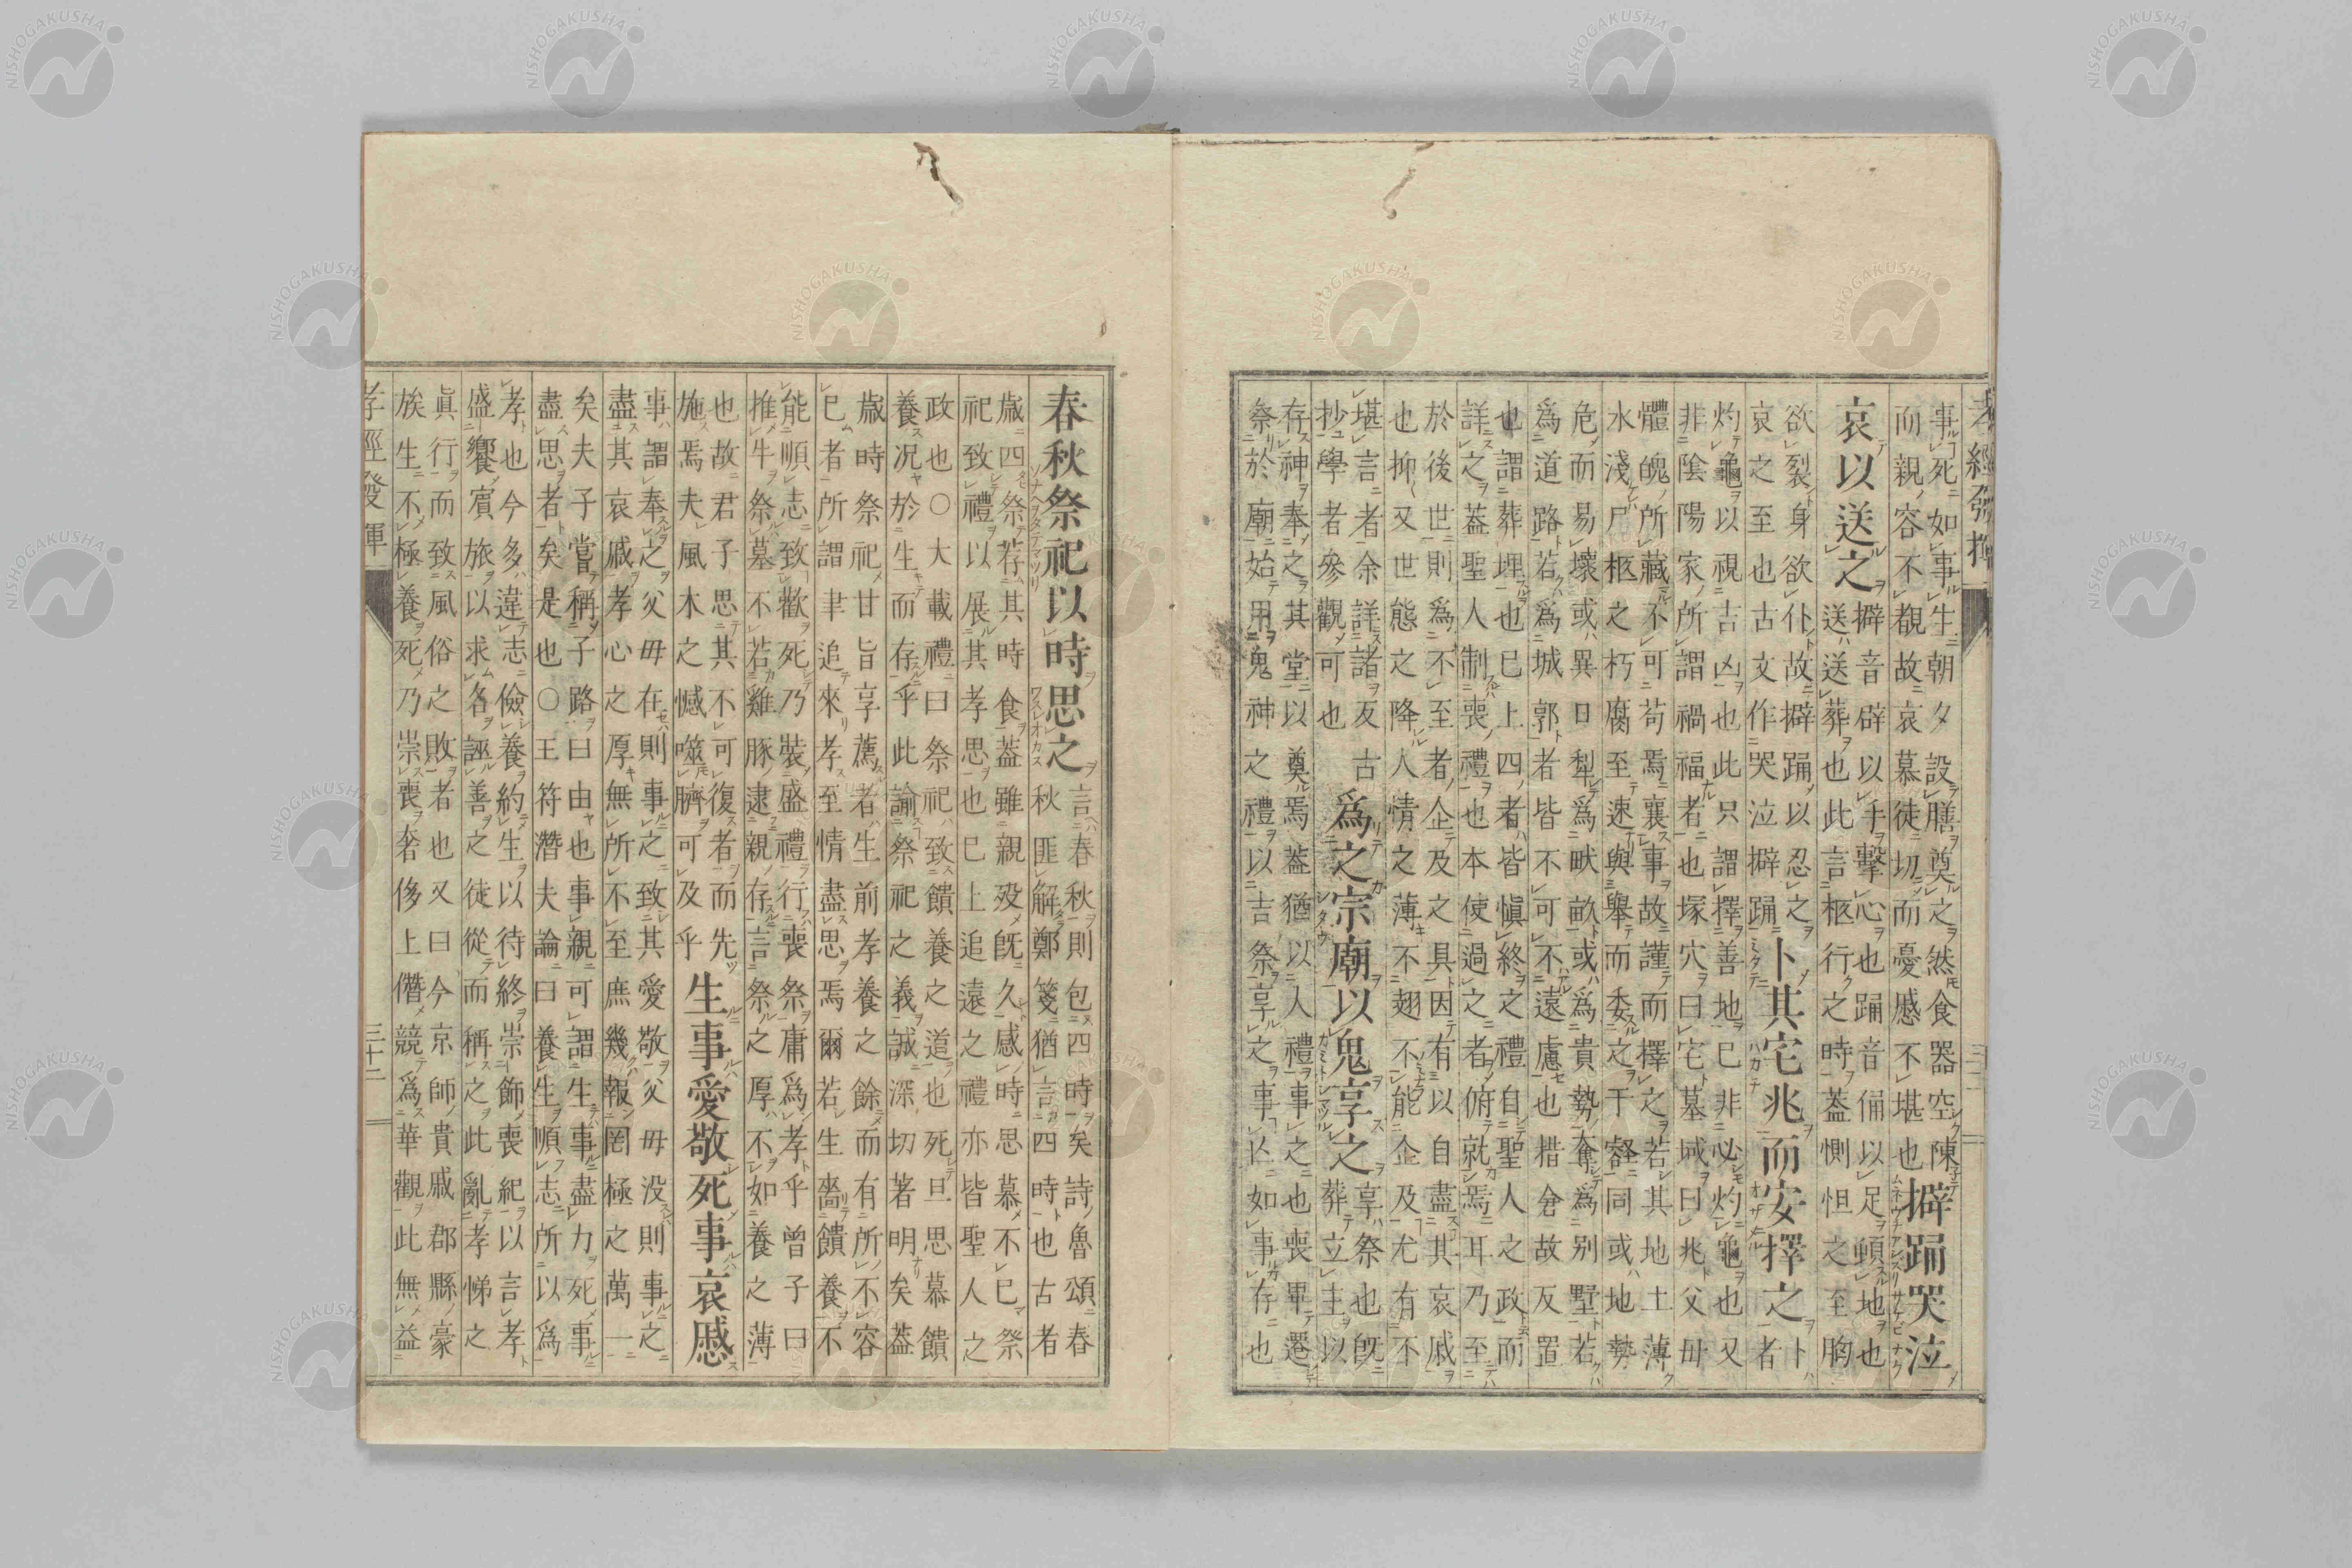 孝經發揮
事死如事生朝夕設膳奠之然食器空陳
而親容不覩故哀慕徒切而憂慼不堪也
擗踊哭泣
哀以送之
擗音辟以手擊心也踊音俑以足頓地也
送送葬也此言柩行之時蓋惻怛之至胸
欲裂身欲仆故擗踊以忍之
哀之至也古文作哭泣擗踊
卜其宅兆而安擇之
卜
者
灼龜以視吉凶也此只謂擇善地已非必灼龜也又
非陰陽家所謂禍福者也塚穴曰宅墓域曰兆父母
體魄所藏不可苟焉襄事故謹而擇之若其地土薄
水淺尸柩之朽腐至速與舉而委之于壑同或地勢
危而易壞或異日犁爲畎畝或爲貴勢奪爲别墅若
爲道路若爲城郭者皆不可不遠慮也措故反置
也謂葬埋也已上四者皆愼終之禮自聖人之政而
詳之蓋聖人制喪禮也本使過之者俯就焉耳乃至
於後世則爲不至者企及之具因有以自盡其哀慼
也抑又世態之降人情之薄不翅不能企及尤有不
堪言者余詳諸反古
抄學者參觀可也
爲之宗廟以鬼享之
享祭也旣
葬立主以
存神奉之其堂以奠焉蓋猶以人禮事之也喪畢遷
祭於廟始用鬼神之禮以吉祭享之事亾如事存也
春秋祭祀以時思之
言春秋則包四時矣詩魯頌春
秋匪解鄭箋猶言四時也古者
歲四祭若其時食蓋雖親殁旣久感時思慕不已祭
祀致禮以展其孝思也已上追遠之禮亦皆聖人之
政也○大載禮曰祭祀致饋養之道也死且思慕饋
養况於生而存乎此諭祭祀之義誠深切著明矣蓋
歲時祭祀甘旨享薦者生前孝養之餘而有所不容
已者所謂聿追來孝至情盡思焉爾若生嗇饋養不
能順志致歡死乃裝盛禮行喪祭庸爲孝乎曾子曰
推牛祭墓不若雞豚逮親存言祭之厚不如養之薄
也故君子思其不可復者而先
施焉夫風木之憾噬臍可及乎
生事愛敬死事哀慼
事謂奉之父母在則事之致其愛敬父母没則事之
盡其哀慼孝心之厚無所不至庶幾報罔極之萬一
矣夫子嘗稱子路曰由也事親可謂生事盡力死事
盡思者矣是也○王符潛夫論曰養生順志所以爲
孝也今多違志儉養約生以待終崇飾喪紀以言孝
盛饗賓旅以求名誣善之徒從而稱之此亂孝悌之
眞行而致風俗之敗者也又曰今京師貴戚郡縣豪
族生不極養死乃崇喪奢侈上僭競爲華觀此無益
孝經發揮
三十二